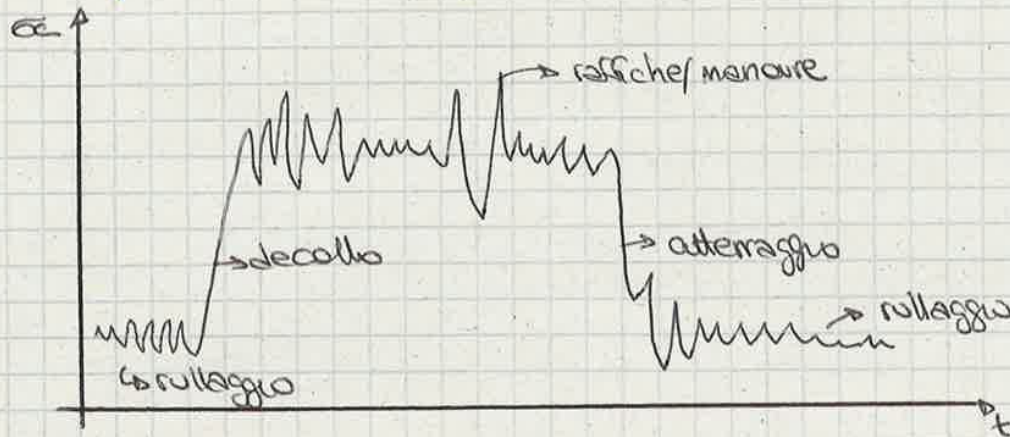 raffiche/manovre
decollo
atterraggio
rullaggio
rullaggio
t